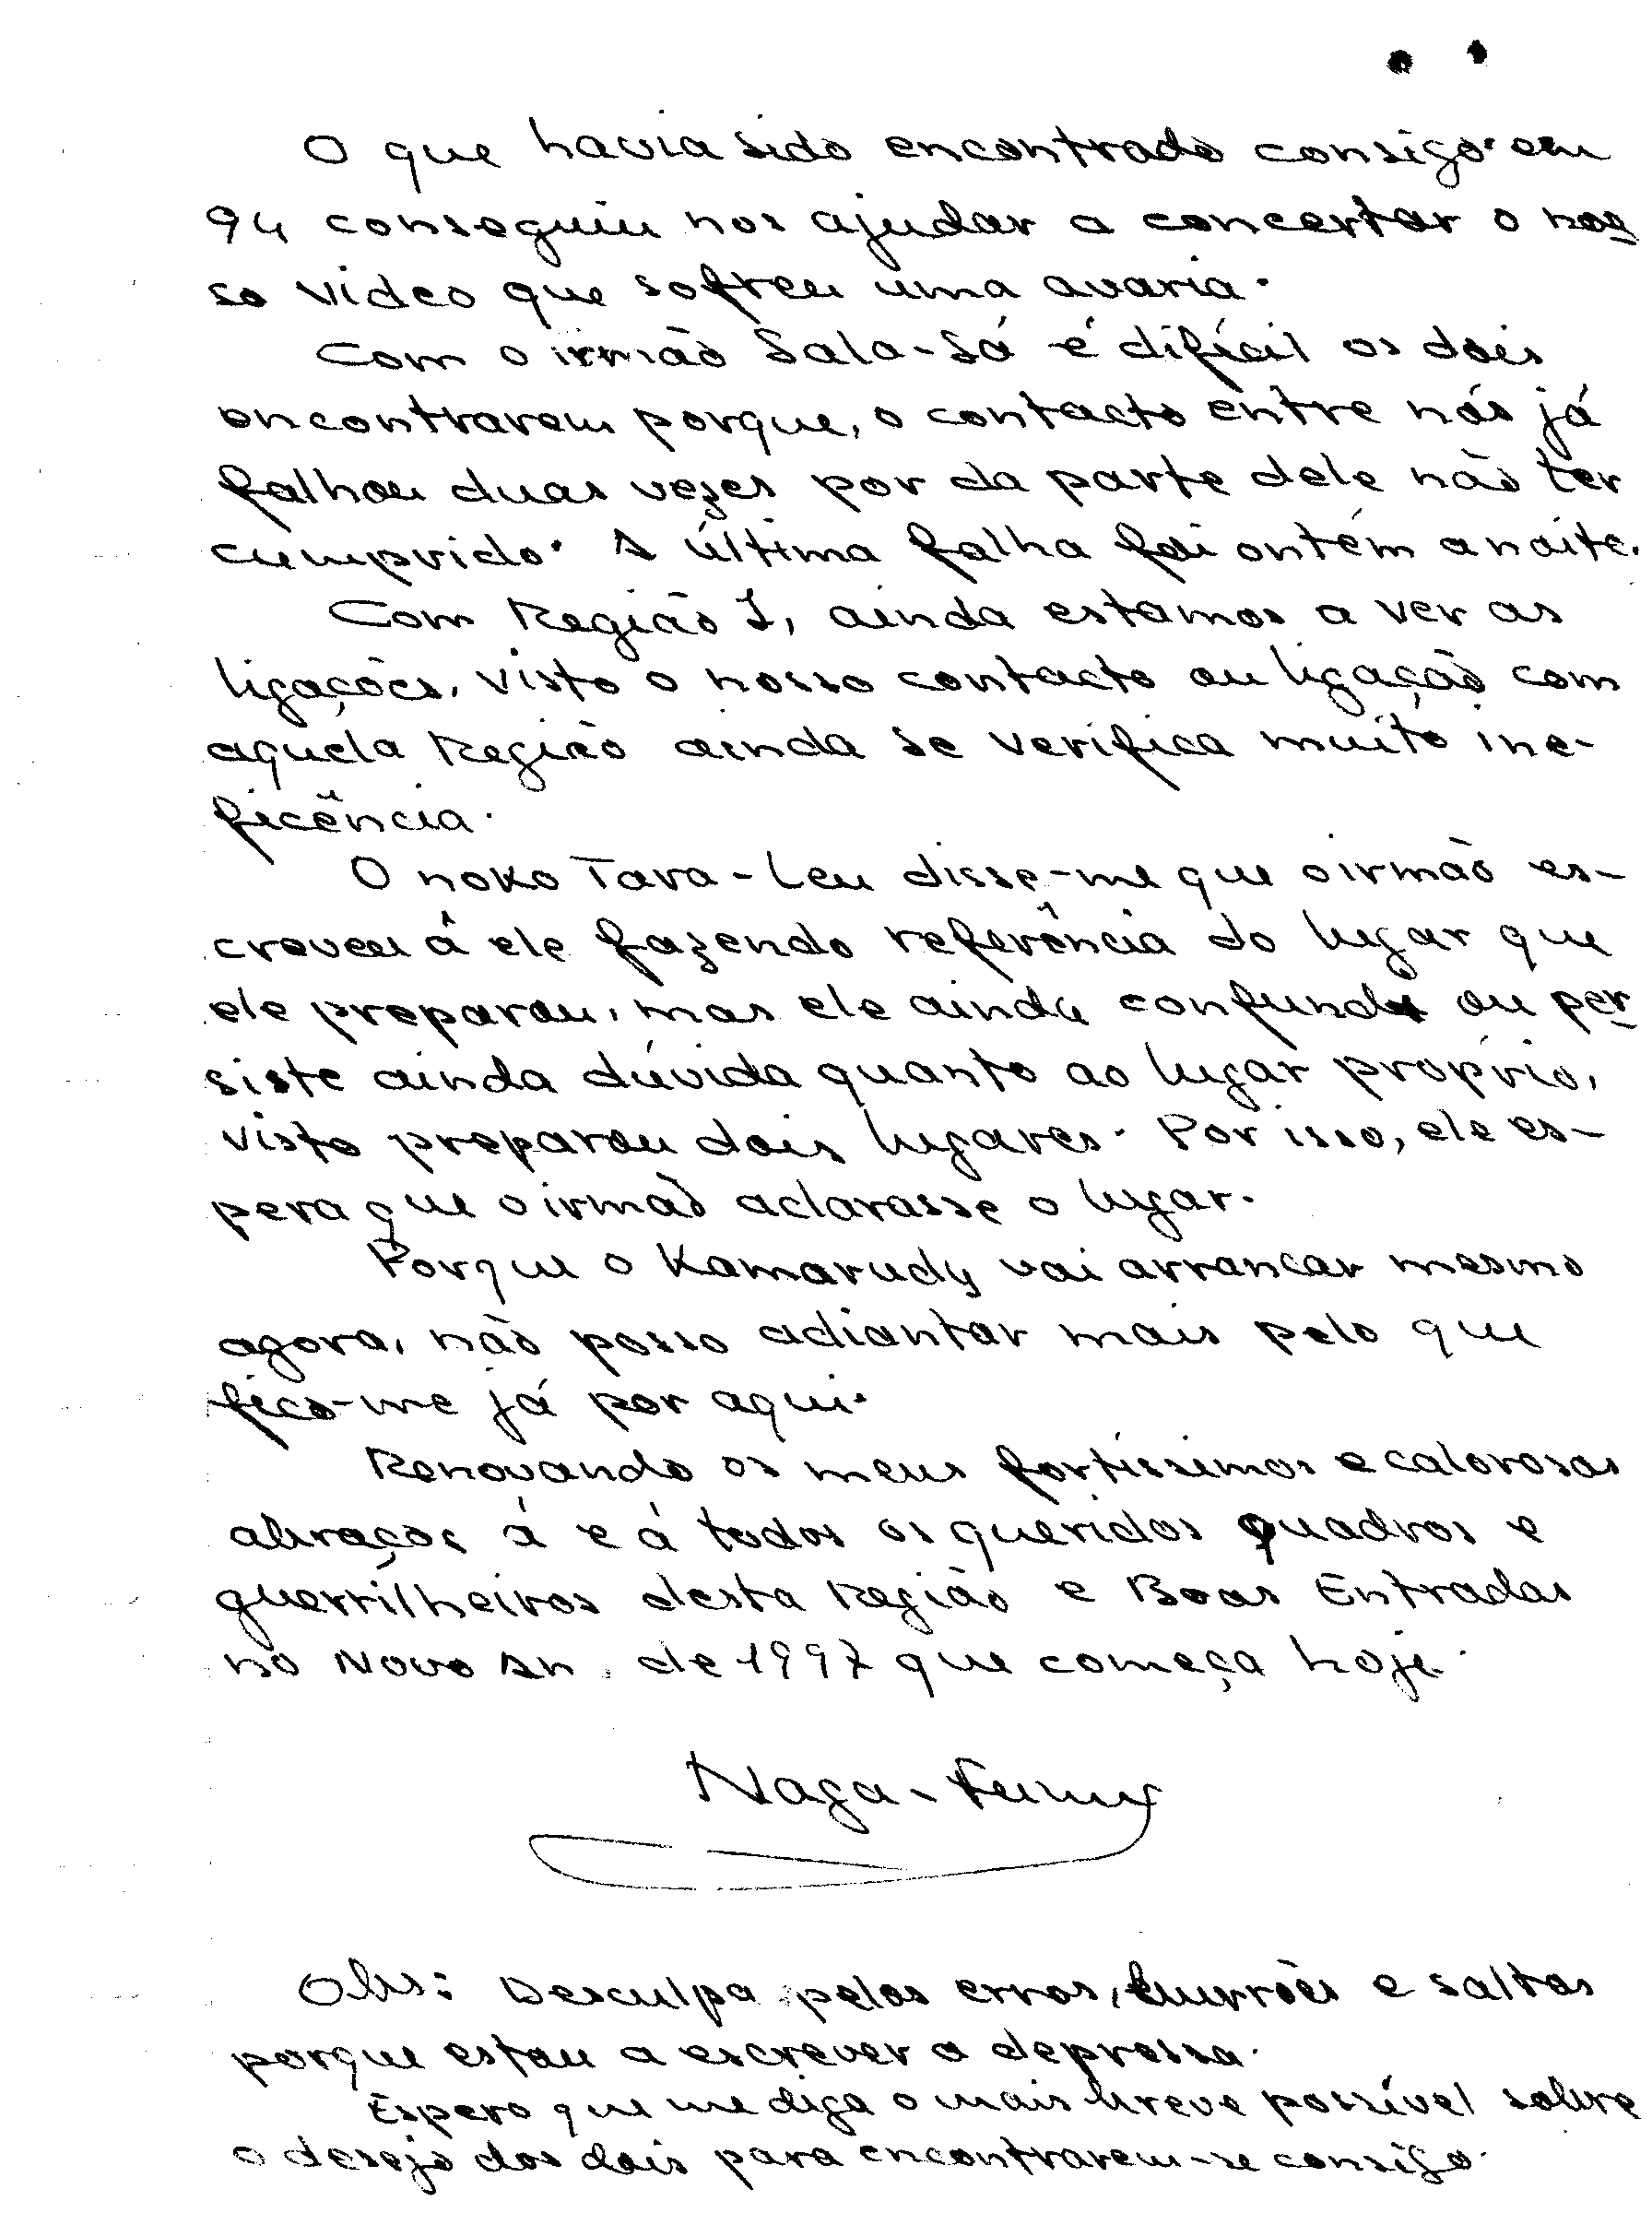 O que havia sido encontrado consigo em
94 conseguiu nos ajudar a concertar o nos
so video que sofreu uma avaria.
Com o irmão Sala-Sá é difícil os dois
encontrarem porque, o contacto entre nós já
falhou duas vezes por da parte dele não ter
cumprido. A última falha foi ontém a noite.
Com Região I, ainda estamos a ver as
ligações, visto o nosso contacto ou ligação com
aquela Região ainda se verifica muito ine-
ficência.
O noko Tara-Leu disse-me que o irmão es-
creveu â ele fazendo referência do lugar que
ele preparou, mas ele ainda confunde ou per
siste ainda dúvida quanto ao lugar próprio,
visto preparou dois lugares. Por isso, ele es-
pera que o irmão aclarasse o lugar.
Porque o Kamarudy vai arrancar mesmo
agora, não posso adiantar mais pelo que
fico-me já por aqui.
Renovando os meus fortíssimos e calorosos
abraços á e á todos os queridos quadros e
guerrilheiros desta Região e Boas Entradas
no Novo An de 1997 que começa hoje.
Naga-
Obs: Desculpa pelos erros, burrões e saltos
porque estou a escrever a depressa.
Espero que me diga o mais breve possível sobre
o desejo dos dois para encontrarem-se consigo.